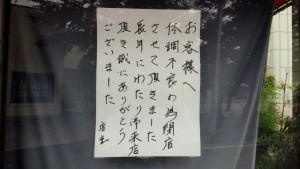 お客様へ
体調不良の為閉店
させて頂きました
長年にわたり御来店
頂き誠にありがとう
ございました
店主